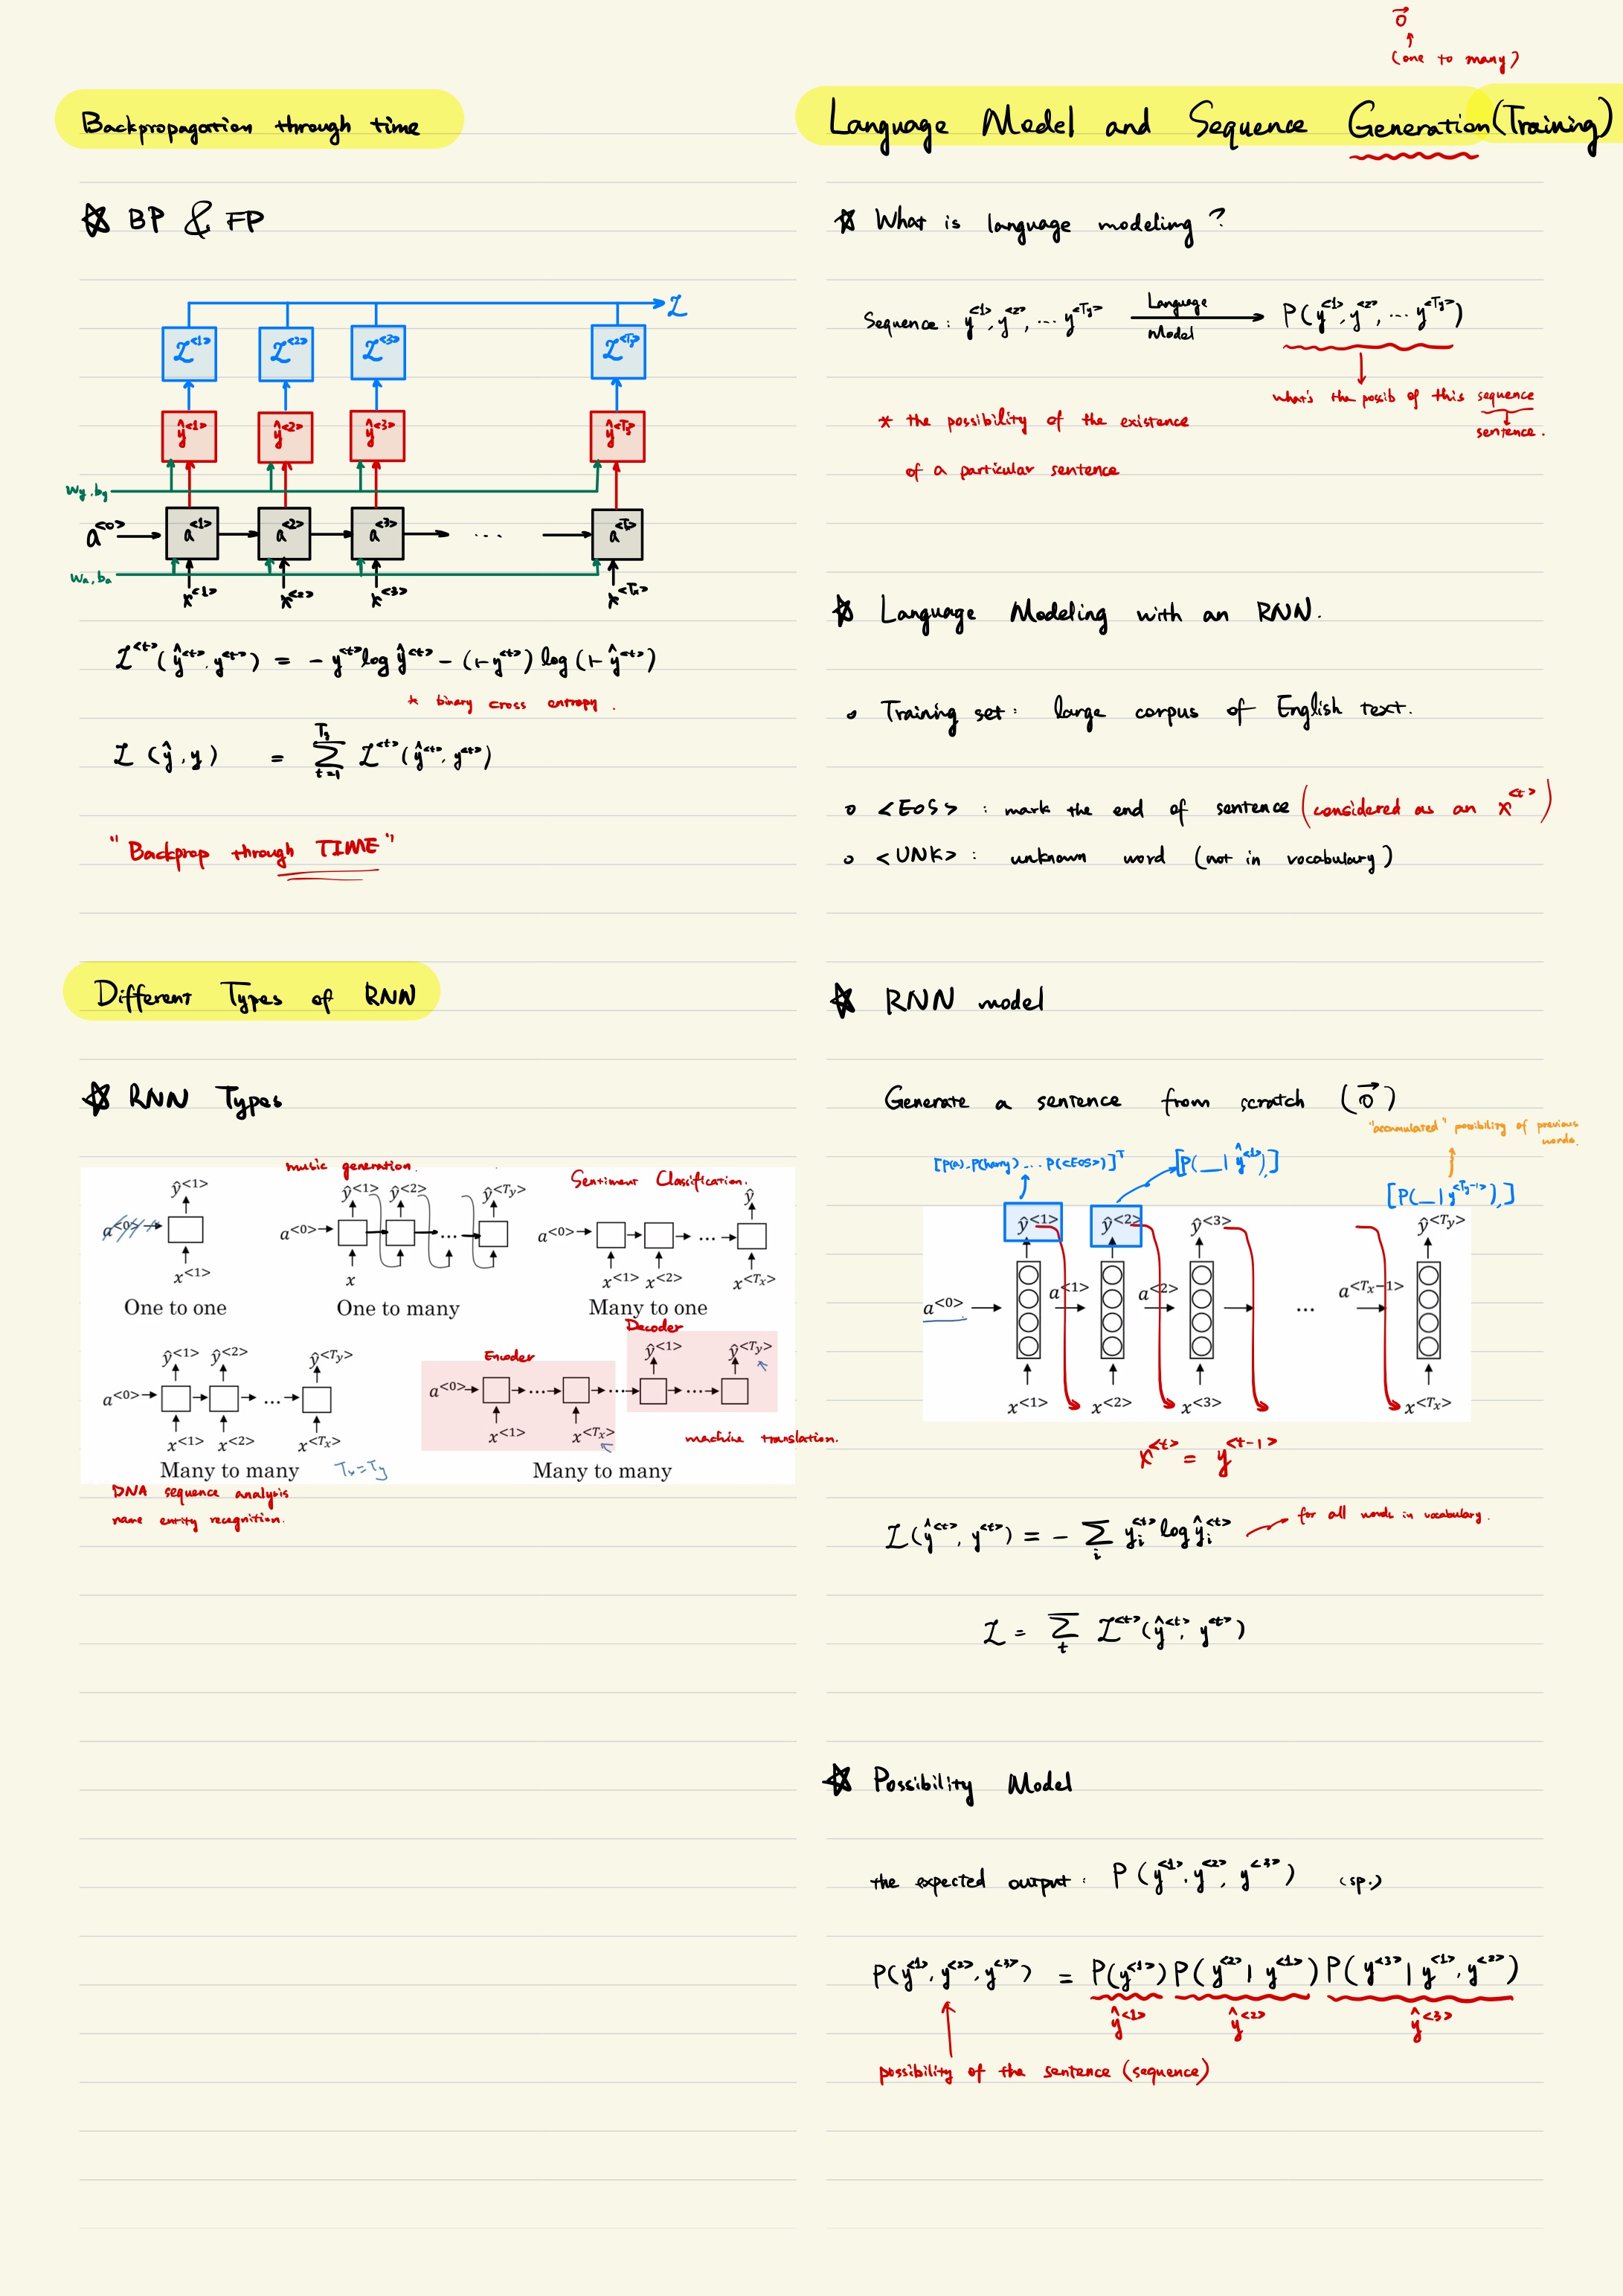 Backpropagation through time
☆ BP & FP
L
L^<1> L^<2> L^<3> L^<Ty>
ŷ^<1> ŷ^<2> ŷ^<3> ŷ^<Ty>
Wy, by
a^<0> a^<1> a^<2> a^<3> ... a^<Tx>
Wa, ba
x^<1> x^<2> x^<3> x^<Tx>
L^<t>(ŷ^<t>, y^<t>) = - y^<t> log ŷ^<t> - (1-y^<t>) log (1-ŷ^<t>)
* binary cross entropy.
L (ŷ, y) = Σ_{t=1}^{Ty} L^<t>(ŷ^<t>, y^<t>)
"Backprop through TIME"
Different Types of RNN
☆ RNN Types
music generation.
Sentiment Classification.
ŷ^<1>
a^<0>
x^<1>
One to one
ŷ^<1> ŷ^<2> ŷ^<Ty>
a^<0> ...
x
One to many
ŷ
a^<0> ...
x^<1> x^<2> x^<Tx>
Many to one
ŷ^<1> ŷ^<2> ŷ^<Ty>
a^<0> ...
x^<1> x^<2> x^<Tx>
Many to many
Tx = Ty
DNA sequence analysis
name entity recognition.
Encoder
Decoder
ŷ^<1> ŷ^<Ty>
a^<0> ... ... ...
x^<1> x^<Tx>
machine translation.
Many to many
0⃗
(one to many)
Language Model and Sequence Generation (Training)
☆ What is language modeling?
Sequence: y^<1>, y^<2>, ... y^<Ty> Language Model P(y^<1>, y^<2>, ... y^<Ty>)
what's the possib of this sequence
sentence.
* the possibility of the existence
of a particular sentence
☆ Language Modeling with an RNN.
o Training set: large corpus of English text.
o <EOS> : mark the end of sentence (considered as an x^<t>)
o <UNK> : unknown word (not in vocabulary)
☆ RNN model
Generate a sentence from scratch (0⃗)
"accumulated" possibility of previous
words.
[P(a), P(harry) ... P(<EOS>)]^T
[P(__|ŷ^<1>),]
[P(__|y^<Ty-1>),]
ŷ^<1> ŷ^<2> ŷ^<3> ŷ^<Ty>
a^<0> a^<1> a^<2> ... a^<Tx-1>
x^<1> x^<2> x^<3> x^<Tx>
x^<t> = y^<t-1>
L(ŷ^<t>, y^<t>) = - Σ_i y_i^<t> log ŷ_i^<t>
for all words in vocabulary.
L = Σ_t L^<t>(ŷ^<t>, y^<t>)
☆ Possibility Model
the expected output: P(y^<1>, y^<2>, y^<3>) (sp.)
P(y^<1>, y^<2>, y^<3>) = P(y^<1>) P(y^<2> | y^<1>) P(y^<3> | y^<1>, y^<2>)
ŷ^<1> ŷ^<2> ŷ^<3>
possibility of the sentence (sequence)